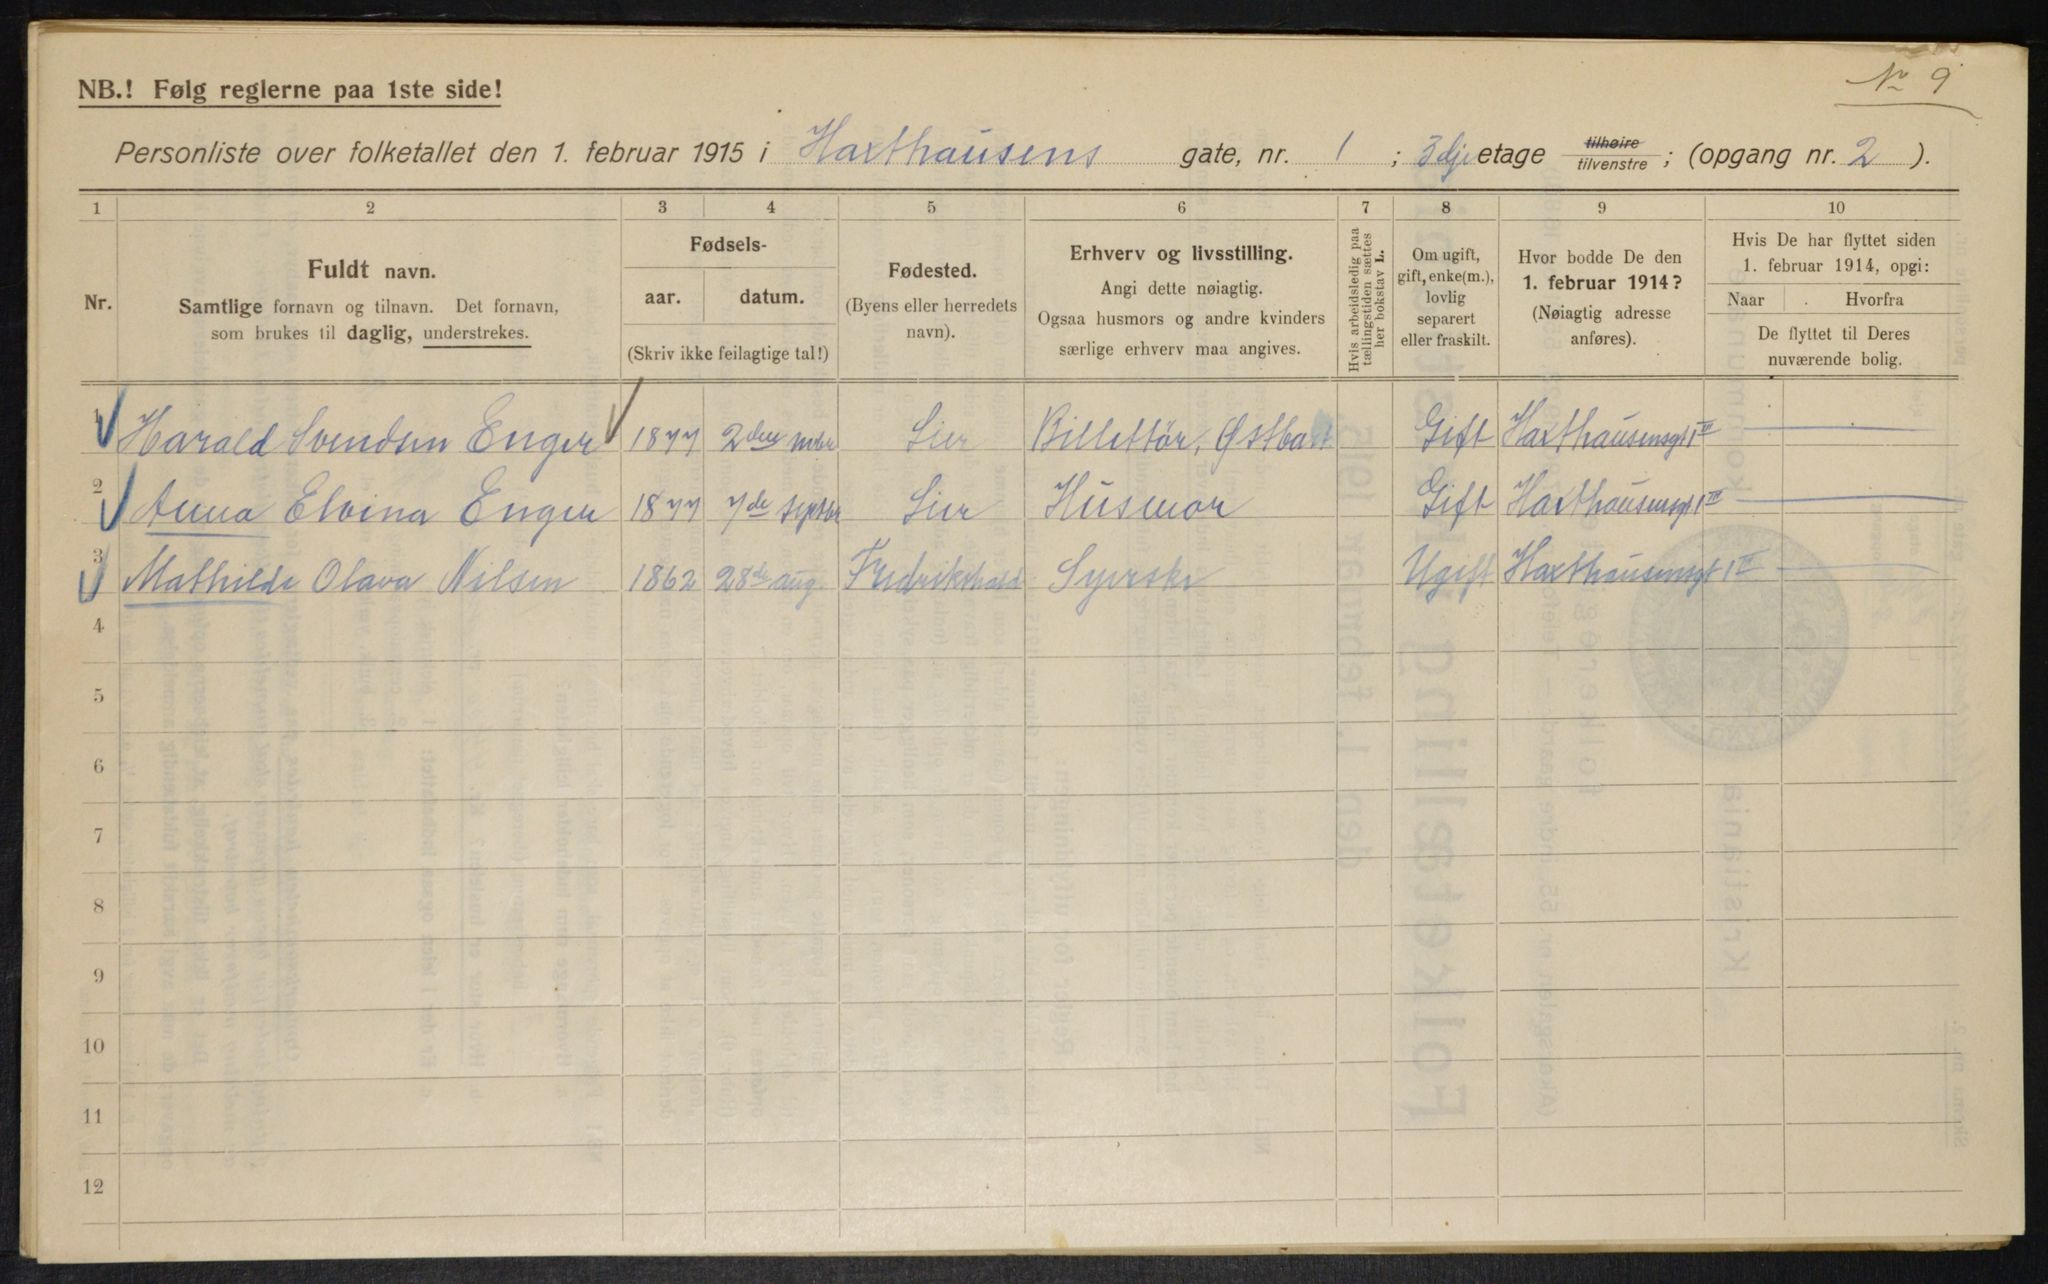 № 9
NB.! Følg reglerne paa 1ste side!
Personliste over folketallet den 1. februar 1915 i Haxthausens gate, nr. 1 ; 3dje etage tilhøire tilvenstre ; (opgang nr. 2 ).
1 2 3 4 5 6 7 8 9 10
Nr.
Fuldt navn.
Samtlige fornavn og tilnavn. Det fornavn,
som brukes til daglig, understrekes.
Fødsels-
aar. datum.
(Skriv ikke feilagtige tal!)
Fødested.
(Byens eller herredets
navn).
Erhverv og livsstilling.
Angi dette nøiagtig.
Ogsaa husmors og andre kvinders
særlige erhverv maa angives.
Hvis arbeidsledig paa
tællingstiden sættes
her bokstav L.
Om ugift,
gift, enke(m.),
lovlig
separert
eller fraskilt.
Hvor bodde De den
1. februar 1914?
(Nøiagtig adresse
anføres).
Hvis De har flyttet siden
1. februar 1914, opgi:
Naar . Hvorfra
De flyttet til Deres
nuværende bolig.
1 Harald Svendsen Enger 1877 2den Lier Billettør, Østba Gift Haxthausensgt 1 III
2 Anna Elvina Enger 1877 7de septbr Lier Husmor Gift Haxthausensgt 1 III
3 Mathilde Olava Nilsen 1862 28de aug. Fredrikshald Syerske Ugift Haxthausensgt 1 III
4
5
6
7
8
9
10
11
12